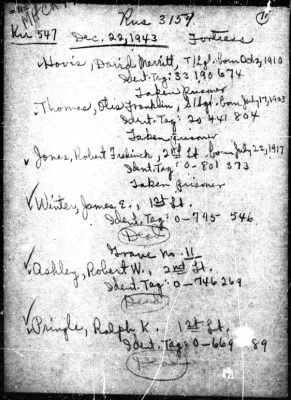 Rus 3154
Ku 547 Dec. 22, 1943 Fortress 11
Hovis, David Merritt, T/Sgt. born Oct 2, 1910
Ident. Tag: 33 190 674
Taken Prisoner
Thomas, Otis Franklin, S/Sgt. born July 17, 1923
Ident. Tag: 20 441 804
Taken prisoner
✓ Jones, Robert Fredrick, 2nd Lt. born July 22, 1917
Ident. Tag: 0-801 373
Taken prisoner
✓ Winter, James E., 1st Lt.
Ident. Tag: 0-795 546
Dead
Grave No. 11
✓ Ashley, Robert W., 2nd Lt.
Ident. Tag: 0-746269
Dead
✓ Pringle, Ralph K. 1st Lt.
Ident. Tag: 0-669 89
Dead